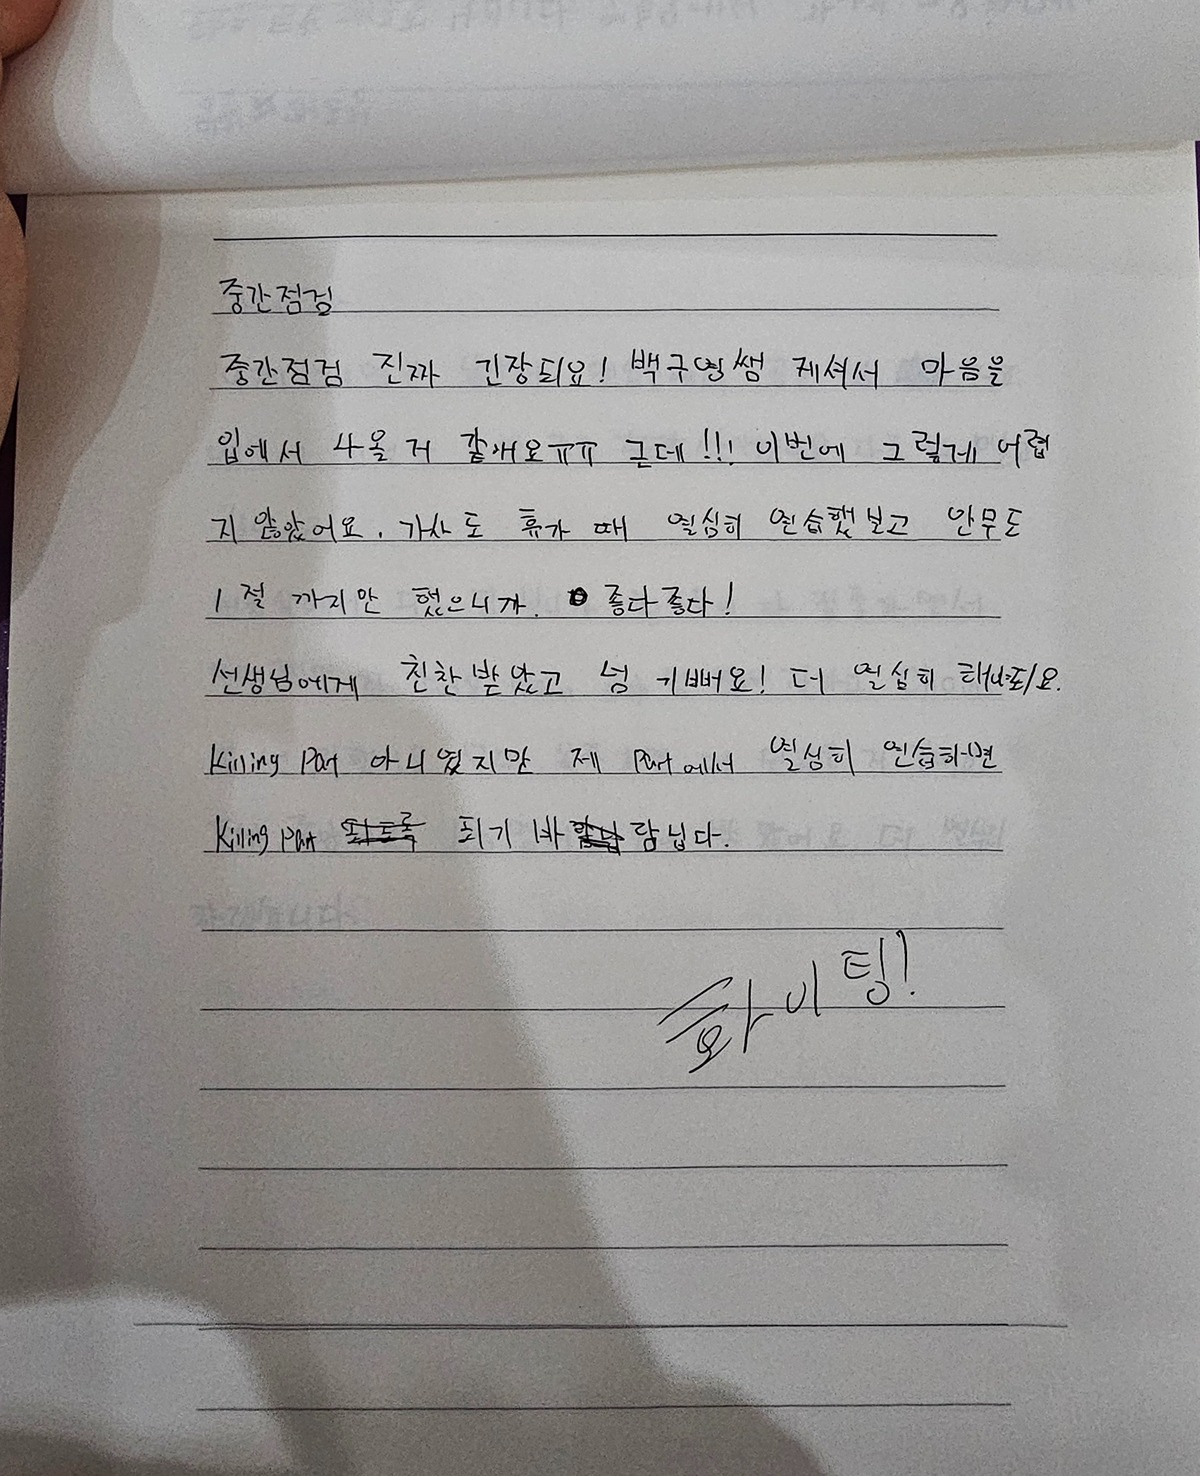 중간점검
중간점검 진짜 긴장되요! 백구영쌤 계셔서 마음을
입에서 나올 거 같애요ㅠㅠ 근데!!! 이번에 그렇게 어렵
지 않았어요. 가사도 휴가 때 열심히 연습했보고 안무도
1절까지만 했으니까. 좋다좋다!
선생님에게 친찬 받았고 넘 기뻐요! 더 열심히 해야되요.
Killing Part 아니였지만 제 Part에서 열심히 연습하면
Killing part 되기 바람닙다.
화이팅!